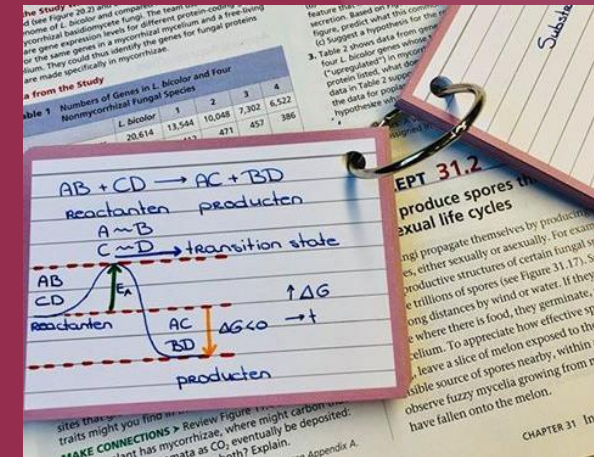 the Study W
d (see Figure 20.2) and
nome of L. bicolor and compared
ycorrhizal basidiomycete fungi. The team
are gene expression levels for different protein-coding
or the same genes in a mycorrhizal mycelium and a free-living
lium. They could thus identify the genes for fungal proteins
are made specifically in mycorrhizae.
a from the Study
able 1 Numbers of Genes in L. bicolor and Four
Nonmycorrhizal Fungal Species
L. bicolor 1 2 3 4
20,614 13,544 10,048 7,302 6,522
471 457 386
feature that
secretion. Based on
figure, predict what this
(c) Suggest a hypothesis for the
3. Table 2 shows data from gene
four L. bicolor genes whose
("upregulated") in mycorr
protein listed, what doe
data in Table 2 suppo
the data for poplar
hypothesize wh
Substr
AB + CD → AC + BD
Reactanten producten
A~B
C~D → transition state
AB
CD
EA
Reactanten
AC
BD
ΔG<0
↑ΔG
→t
producten
EPT 31.2
produce spores th
exual life cycles
ngi propagate themselves by producing
es, either sexually or asexually. For exam
roductive structures of certain fungal sp
e trillions of spores (see Figure 31.17). S
ong distances by wind or water. If they
e where there is food, they germinate,
celium. To appreciate how effective sp
, leave a slice of melon exposed to the
isible source of spores nearby, within
observe fuzzy mycelia growing from m
have fallen onto the melon.
CHAPTER 31 In
sites that
traits might you find in
MAKE CONNECTIONS > Review Figure
plant has mycorrhizae, where might carbon
mata as CO₂ eventually be deposited:
both? Explain.
Appendix A.